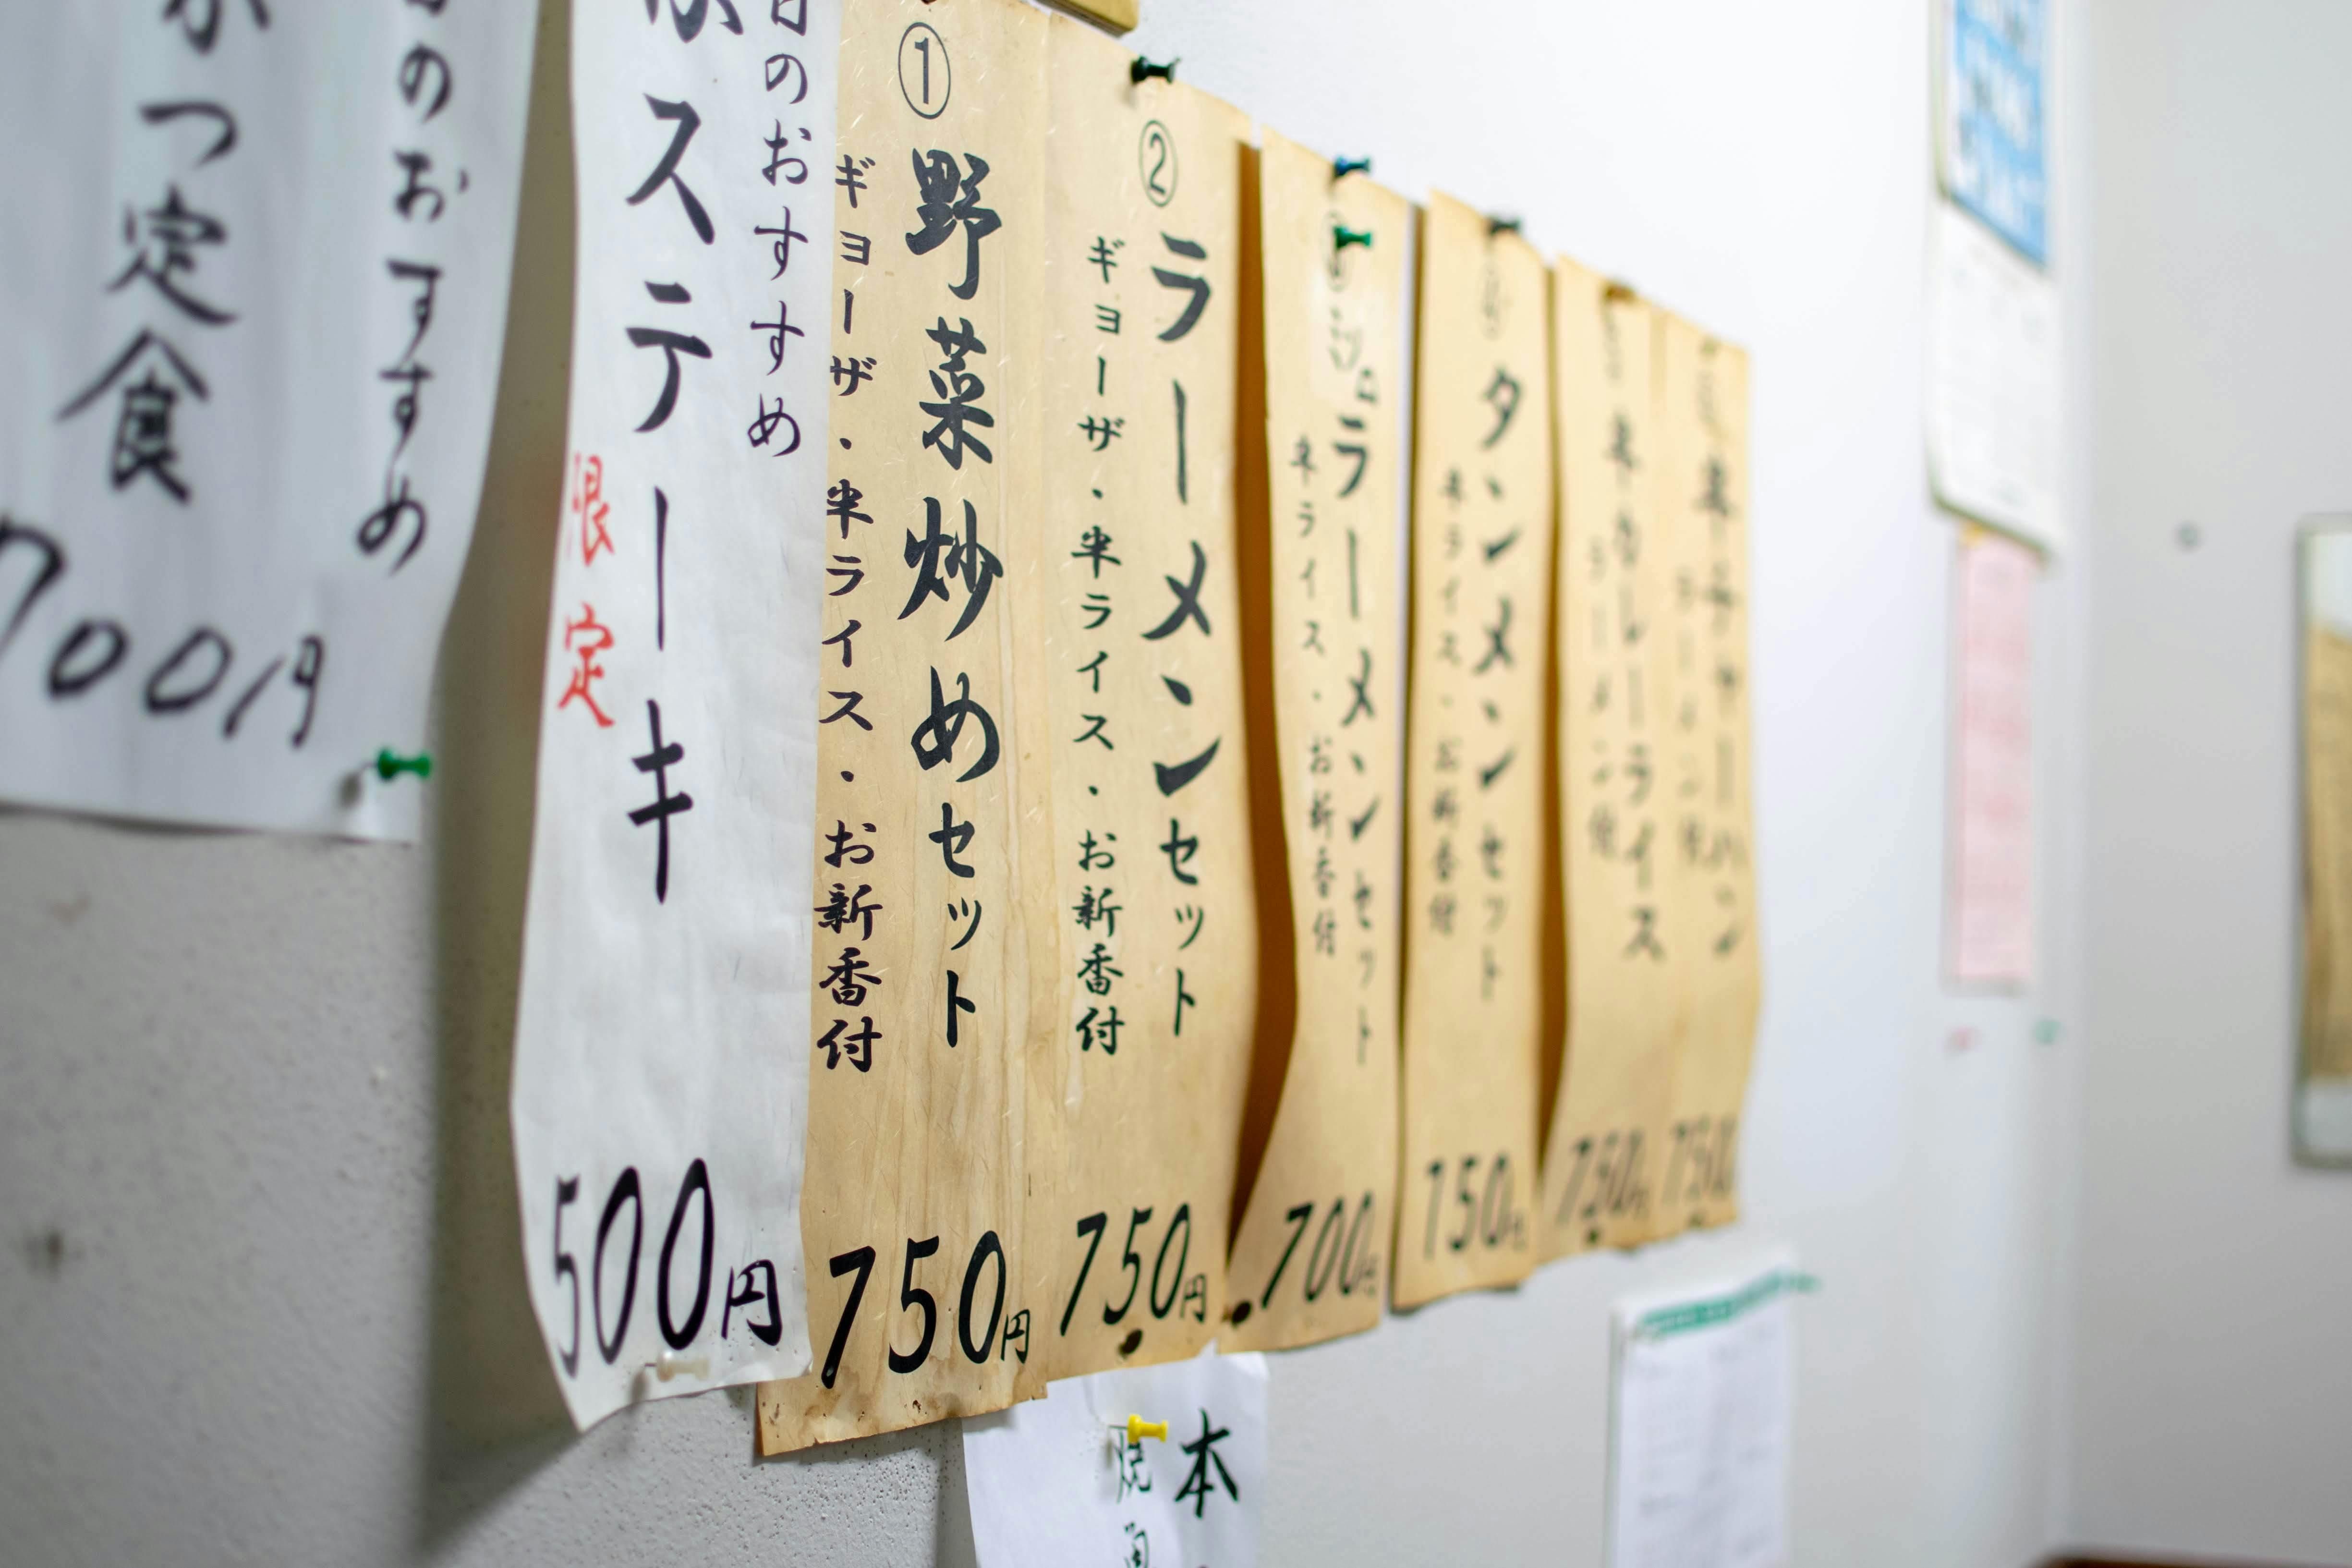 のおすすめ
つ定食
700円
日のおすすめ
ステーキ
限定
500円
①
野菜炒めセット
ギョーザ・半ライス・お新香付
750円
②
ラーメンセット
ギョーザ・半ライス・お新香付
750円
ラーメンセット
半ライス・お新香付
700円
タンメンセット
半ライス・お新香付
750円
半カレーライス
ラーメン付
750円
半チャーハン
ラーメン付
750
本
焼